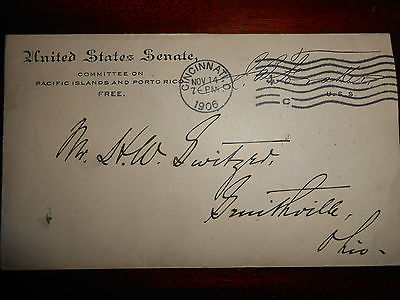 United States Senate,
COMMITTEE ON
PACIFIC ISLANDS AND PORTO RICO
FREE.
CINCINNATI, O.
NOV 14
7 PM
1906
C
U.S.
Mr. H. W. Switzer,
Smithville,
Ohio.